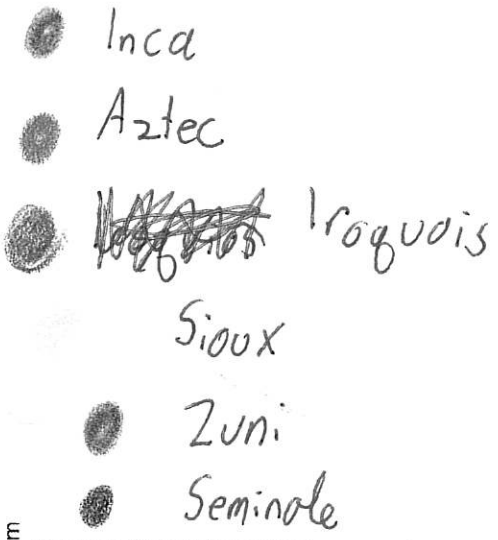 Inca
Aztec
Iroquois
Sioux
Zuni
Seminole
m